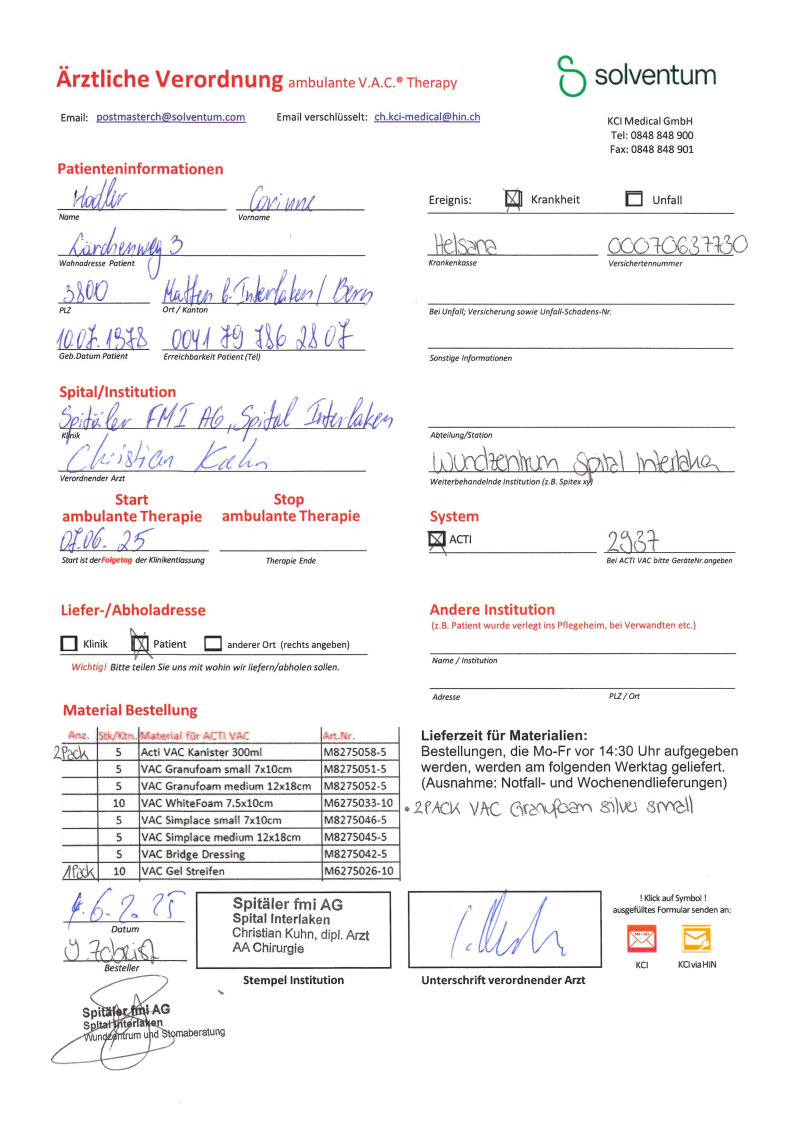 Ärztliche Verordnung ambulante V.A.C.® Therapy
solventum
Email: postmasterch@solventum.com Email verschlüsselt: ch.kci-medical@hin.ch
KCI Medical GmbH
Tel: 0848 848 900
Fax: 0848 848 901
Patienteninformationen
Hodler Corinne
Name Vorname
Ereignis: Krankheit Unfall
Lärchenweg 3
Wohnadresse Patient
Helsana 00070637730
Krankenkasse Versichertennummer
3800 Matten b. Interlaken / Bern
PLZ Ort / Kanton
Bei Unfall; Versicherung sowie Unfall-Schadens-Nr.
10.07.1978 0041 79 786 28 07
Geb.Datum Patient Erreichbarkeit Patient (Tel)
Sonstige Informationen
Spital/Institution
Spitäler FMI AG, Spital Interlaken
Klinik
Abteilung/Station
Christian Kuhn
Verordnender Arzt
Wundzentrum Spital Interlaken
Weiterbehandelnde Institution (z.B. Spitex xy)
Start ambulante Therapie
Stop ambulante Therapie
07.06.25
Start ist der Folgetag der Klinikentlassung Therapie Ende
System
ACTI 2937
Bei ACTI VAC bitte GeräteNr.angeben
Liefer-/Abholadresse
Klinik Patient anderer Ort (rechts angeben)
Wichtig! Bitte teilen Sie uns mit wohin wir liefern/abholen sollen.
Andere Institution
(z.B. Patient wurde verlegt ins Pflegeheim, bei Verwandten etc.)
Name / Institution
Adresse PLZ / Ort
Material Bestellung
Anz. Stk/Ktn. Material für ACTI VAC Art.Nr.
2Pack 5 Acti VAC Kanister 300ml M8275058-5
5 VAC Granufoam small 7x10cm M8275051-5
5 VAC Granufoam medium 12x18cm M8275052-5
10 VAC WhiteFoam 7.5x10cm M6275033-10
5 VAC Simplace small 7x10cm M8275046-5
5 VAC Simplace medium 12x18cm M8275045-5
5 VAC Bridge Dressing M8275042-5
1Pack 10 VAC Gel Streifen M6275026-10
Lieferzeit für Materialien:
Bestellungen, die Mo-Fr vor 14:30 Uhr aufgegeben
werden, werden am folgenden Werktag geliefert.
(Ausnahme: Notfall- und Wochenendlieferungen)
• 2PACK VAC Granufoam silver small
Datum
Besteller
Spitäler fmi AG
Spital Interlaken
Christian Kuhn, dipl. Arzt
AA Chirurgie
Stempel Institution
Unterschrift verordnender Arzt
! Klick auf Symbol !
ausgefülltes Formular senden an:
KCI KCI via HIN
Spitäler fmi AG
Spital Interlaken
Wundzentrum und Stomaberatung